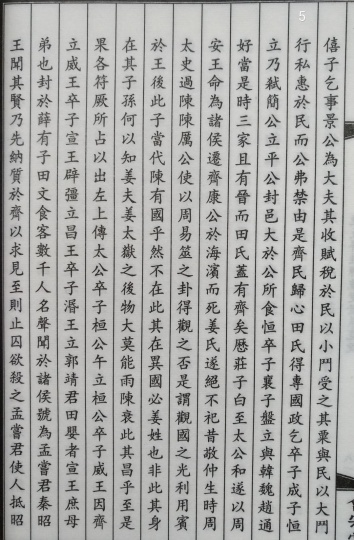 僖子乞事景公為大夫其收賦稅於民以小鬥受之其粟與民以大鬥
行私惠於民而公弗禁由是齊民歸心田氏得專國政乞卒子成子恒
立乃弒簡公立平公封邑大於公所食恒卒子襄子盤立與韓魏趙通
好當是時三家且有晉而田氏蓋有齊矣歷莊子白至太公和遂以周
安王命為諸侯遷齊康公於海濱而死姜氏遂絕不祀昔敬仲生時周
太史過陳陳厲公使以周易筮之卦得觀之否是謂觀國之光利用賓
於王後此子當代陳有國乎然不在此其在異國必姜姓也非此其身
在其子孫何以知姜夫姜太嶽之後物大莫能兩陳衰此其昌乎至是
果各符厥所占以出左上傳太公卒子桓公午立桓公卒子威王因齊
立威王卒子宣王辟彊立昌王卒子湣王立郭靖君田嬰者宣王庶母
弟也封於薛有子田文食客數千人名聲聞於諸侯號為孟嘗君秦昭
王聞其賢乃先納質於齊以求見至則止囚欲殺之孟嘗君使人抵昭
5